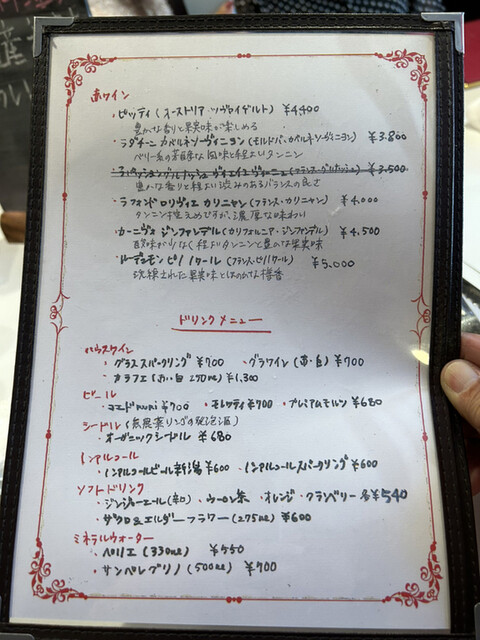 赤ワイン
・ピッティ(オーストリア・ツヴァイゲルト) ¥4,400
豊かな香りと果実味が楽しめる
・ラダチーニ カベルネソーヴィニヨン(モルドバ・カベルネソーヴィニヨン) ¥3,800
ベリー系の芳醇な風味と程よいタンニン
¥3,500
豊かな香りと程よい渋みのあるバランスの良さ
・ラフォンドロリヴィエ カリニャン(フランス・カリニャン) ¥4,000
タンニン控えめですが、濃厚な味わい
・カーニヴォ ジンファンデル(カリフォルニア・ジンファンデル) ¥4,500
酸味が少なく程よいタンニンと豊かな果実味
・ドーデンモン ピノノワール(フランス・ピノノワール) ¥5,000
洗練された果実味とほのかな樽香
ドリンクメニュー
ハウスワイン
・グラススパークリング ¥700 ・グラスワイン(赤・白) ¥700
・カラフェ(赤・白 250ml) ¥1,300
ビール
・コエドmini ¥700 ・モレッティ ¥700 ・プレミアムモルツ ¥680
シードル(無農薬リンゴの発泡酒)
・オーガニックシードル ¥680
ノンアルコール
・ノンアルコールビール新潟 ¥600 ・ノンアルコールスパークリング ¥600
ソフトドリンク
・ジンジャーエール(辛口) ・ウーロン茶 ・オレンジ ・クランベリー 各¥540
・ザクロ&エルダーフラワー(275ml) ¥600
ミネラルウォーター
・ペリエ(330ml) ¥550
・サンペレグリノ(500ml) ¥700